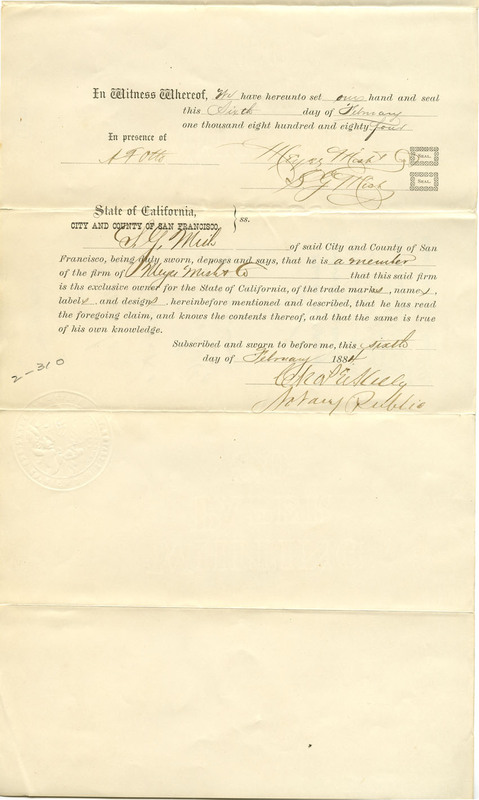 In Witness Whereof, We have hereunto set our hand and seal
this Sixth day of February
one thousand eight hundred and eighty four
In presence of
A F Otto
Meyer Mish & Co SEAL.
S G Mish SEAL.
State of California,
CITY AND COUNTY OF SAN FRANCISCO, } ss.
S. G. Mish of said City and County of San
Francisco, being duly sworn, deposes and says, that he is a member
of the firm of Meyer Mish & Co that this said firm
is ths exclusive owner for the State of California, of the trade marks, names,
labels and designs hereinbefore mentioned and described, that he has read
the foregoing claim, and knows the contents thereof, and that the same is true
of his own knowledge.
Subscribed and sworn to before me, this sixth
day of February 1884
Notary Public
2-310